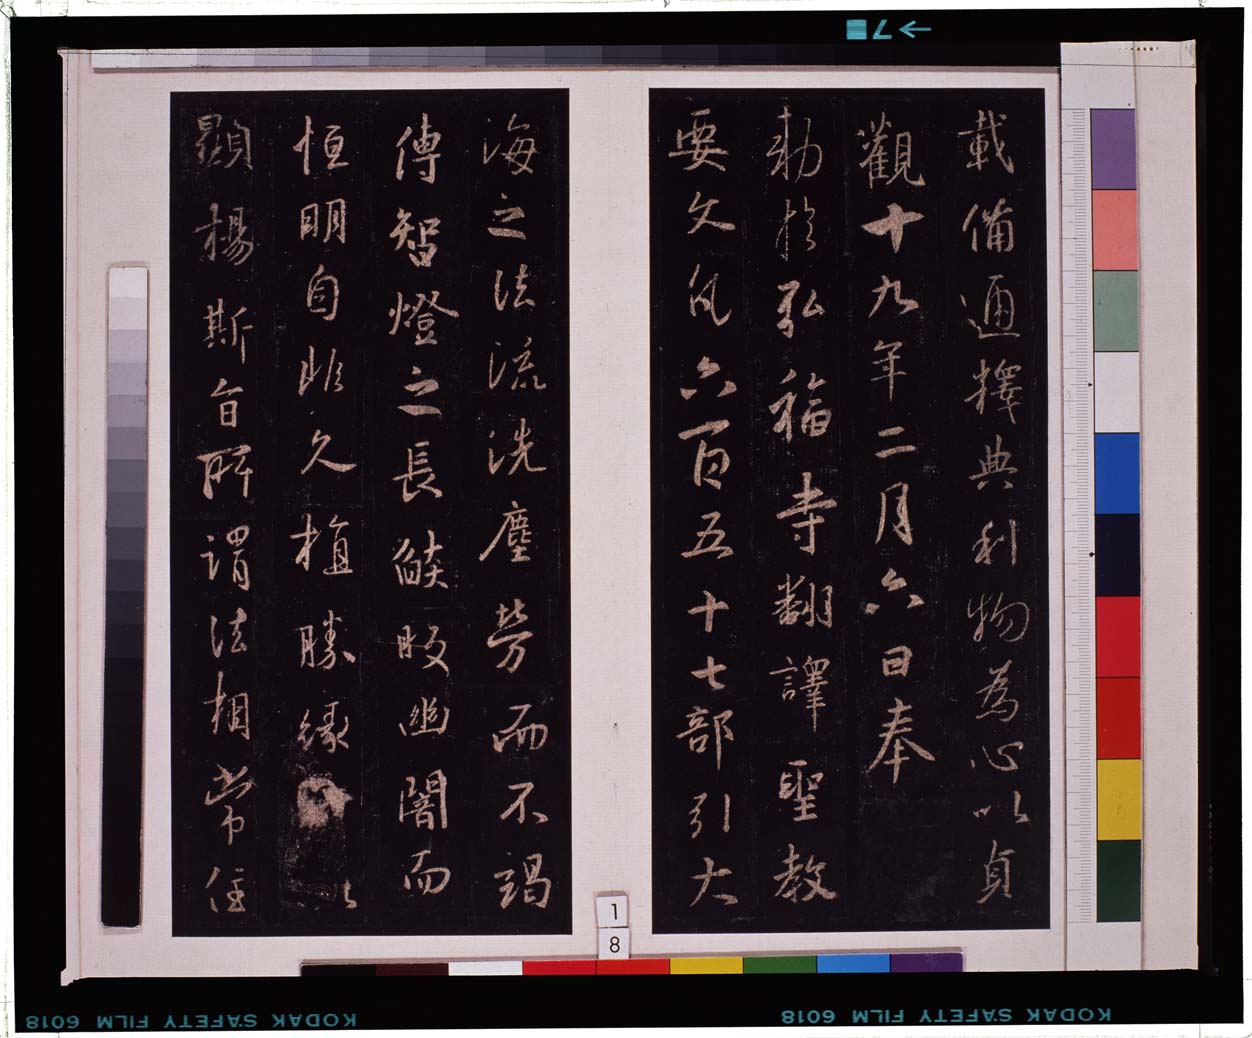 載備通釋典利物為心以貞
觀十九年二月六日奉
勅於弘福寺翻譯聖教
要文凡六百五十七部引大
海之法流洗塵勞而不竭
傳智燈之長焰皎幽闇而
恒明自非久植勝緣以
顯楊斯旨所謂法相常住
1
8
KODAK SAFETY FILM 6018
KODAK SAFETY FILM 6018
→7